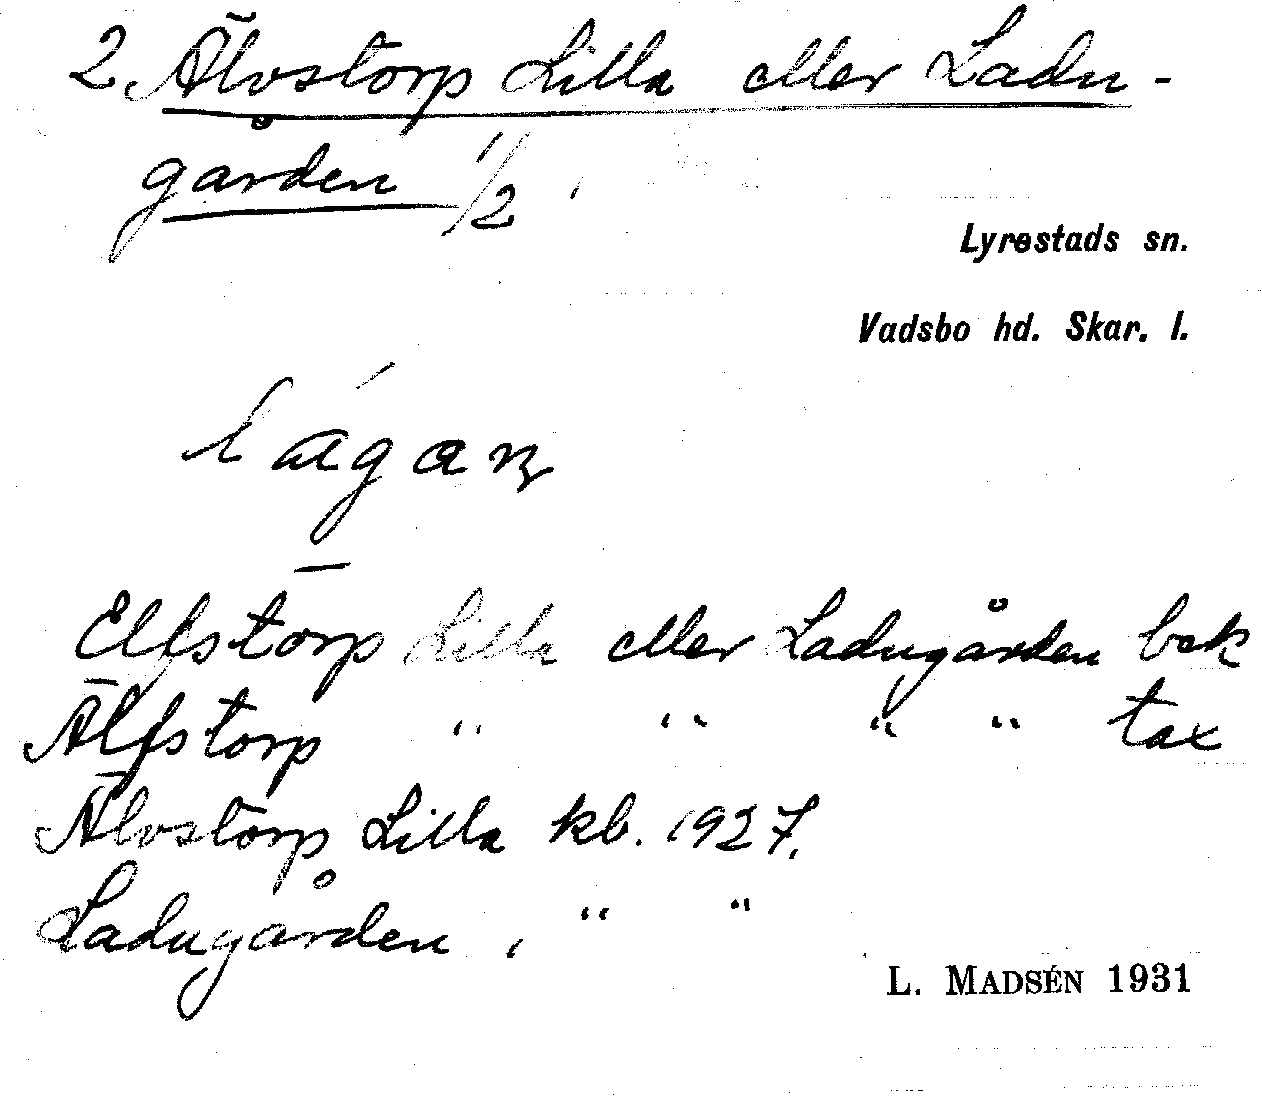 2 Älvstorp Lilla eller Ladu-
gården 1/2
Lyrestads sn.
Vadsbo hd. Skar. l.
Elfstorp Lilla eller Ladugården bek
Älfstorp " " " " tax
Älvstorp Lilla kb. 1927.
Ladugården, " "
L. MADSÉN 1931